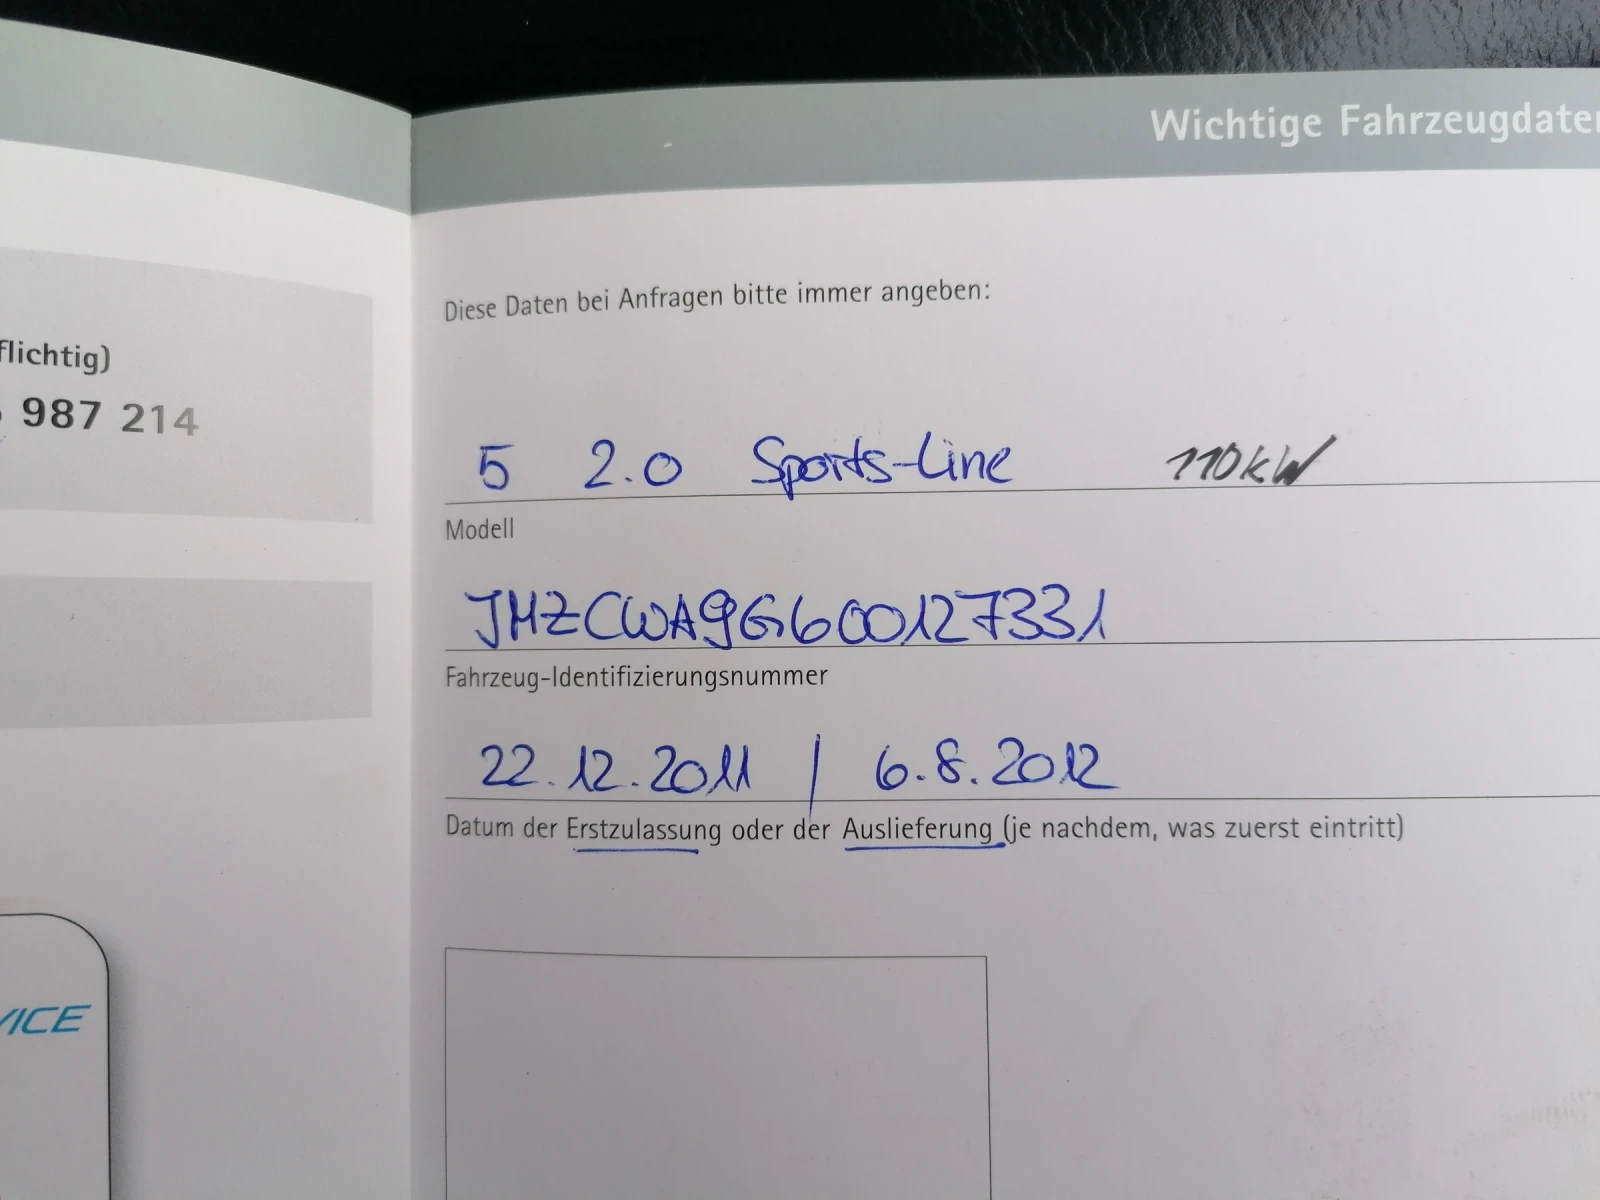 Wichtige Fahrzeugdate
flichtig)
987 214
VICE
Diese Daten bei Anfragen bitte immer angeben:
5 2.0 Sports-Line 110kW
Modell
JMZCWA9G600127331
Fahrzeug-Identifizierungsnummer
22.12.2011 / 6.8.2012
Datum der Erstzulassung oder der Auslieferung (je nachdem, was zuerst eintritt)